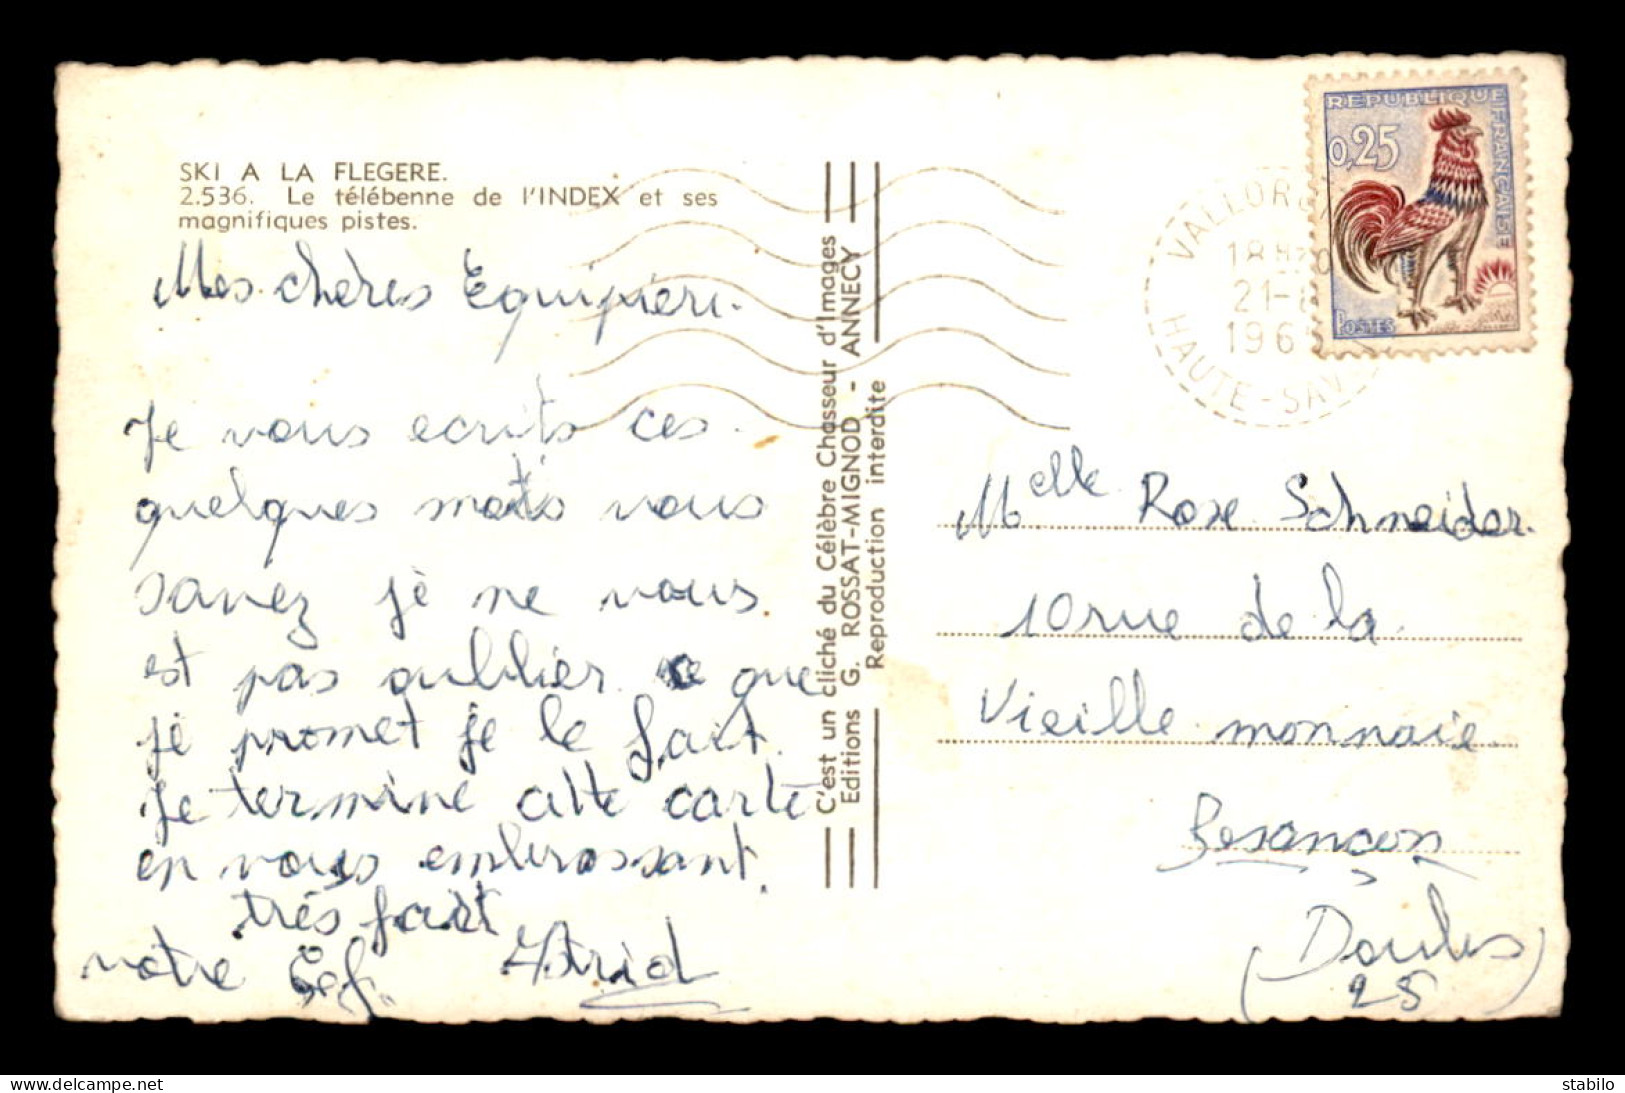 SKI A LA FLEGERE.
2.536. Le télébenne de l'INDEX et ses
magnifiques pistes.
Mes chères Equipieri.
Je vous ecrits ces
quelques mots vous
savez je ne vous
est pas oublier ce que
je promet je le fait.
Je termine cette carte
en vous embrassant.
très fort
votre Astrid
C'est un cliché du Célèbre Chasseur d'Images
Editions G. ROSSAT-MIGNOD - ANNECY
Reproduction interdite
REPUBLIQUE FRANÇAISE
0,25
POSTES
18H
21-
196
HAUTE-SAV
Melle Rose Schneider.
10 rue de la
Vieille monnaie
Besançon
(Doubs)
25
delcampe.net
stabilo